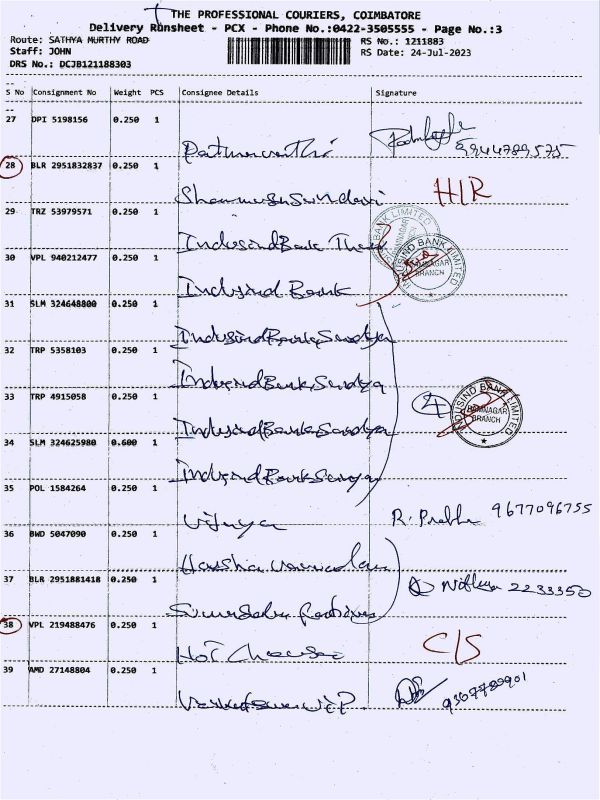 THE PROFESSIONAL COURIERS, COIMBATORE
Delivery Runsheet - PCX - Phone No.:0422-3505555 - Page No.:3
Route: SATHYA MURTHY ROAD
RS No.: 1211883
Staff: JOHN
RS Date: 24-Jul-2023
DRS No.: DCJB121188303
S No Consignment No Weight PCS Consignee Details Signature
27 DPI 5198156 0.250 1
9944789575
28 BLR 2951832837 0.250 1
H/R
29 TRZ 53979571 0.250 1
IndusindBank
30 VPL 940212477 0.250 1
Indusind Bank
INDUSIND BANK LIMITED
RAMNAGAR
BRANCH
31 SLM 324648800 0.250 1
IndusindBank
32 TRP 5358103 0.250 1
IndusindBank
33 TRP 4915058 0.250 1
IndusindBank
4
INDUSIND BANK LIMITED
RAMNAGAR
BRANCH
34 SLM 324625980 0.600 1
IndusindBank
35 POL 1584264 0.250 1
Vijaya R. Prabha 9677096755
36 BWD 5047090 0.250 1
37 BLR 2951881418 0.250 1
Nithya 2233350
38 VPL 219488476 0.250 1
C/S
39 AMD 27148804 0.250 1